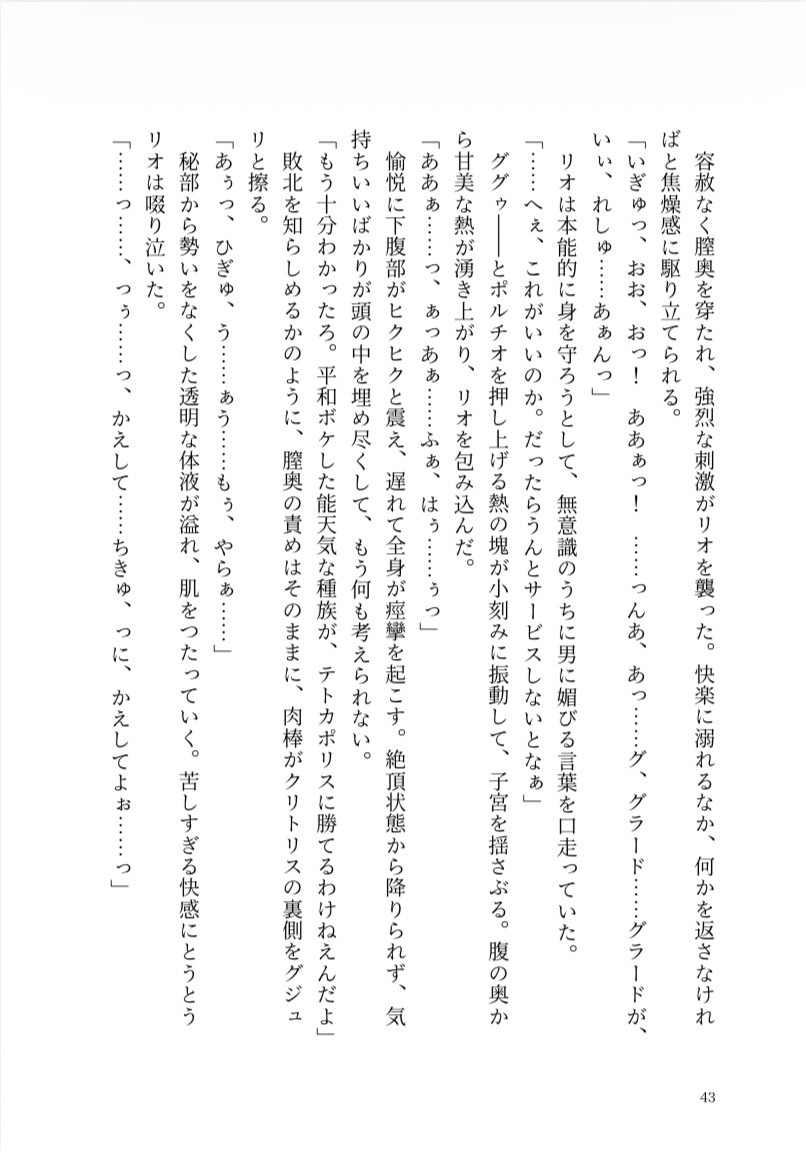 容赦なく膣奥を穿たれ、強烈な刺激がリオを襲った。快楽に溺れるなか、何かを返さなけれ
ばと焦燥感に駆り立てられる。
「いぎゅっ、おお、おっ！　ああぁっ！　……っんあ、あっ……グ、グラード……グラードが、
いぃ、れしゅ……あぁんっ」
リオは本能的に身を守ろうとして、無意識のうちに男に媚びる言葉を口走っていた。
「……へぇ、これがいいのか。だったらうんとサービスしないとなぁ」
ググゥ――とポルチオを押し上げる熱の塊が小刻みに振動して、子宮を揺さぶる。腹の奥か
ら甘美な熱が湧き上がり、リオを包み込んだ。
「ああぁ……っ、ぁっあぁ……ふぁ、はぅ……ぅっ」
愉悦に下腹部がヒクヒクと震え、遅れて全身が痙攣を起こす。絶頂状態から降りられず、気
持ちいいばかりが頭の中を埋め尽くして、もう何も考えられない。
「もう十分わかったろ。平和ボケした能天気な種族が、テトカポリスに勝てるわけねえんだよ」
敗北を知らしめるかのように、膣奥の責めはそのままに、肉棒がクリトリスの裏側をグジュ
リと擦る。
「あぅっ、ひぎゅ、う……ぁう……もぅ、やらぁ……」
秘部から勢いをなくした透明な体液が溢れ、肌をつたっていく。苦しすぎる快感にとうとう
リオは啜り泣いた。
「……っ……、つぅ……っ、かえして……ちきゅ、っに、かえしてよぉ……っ」
43